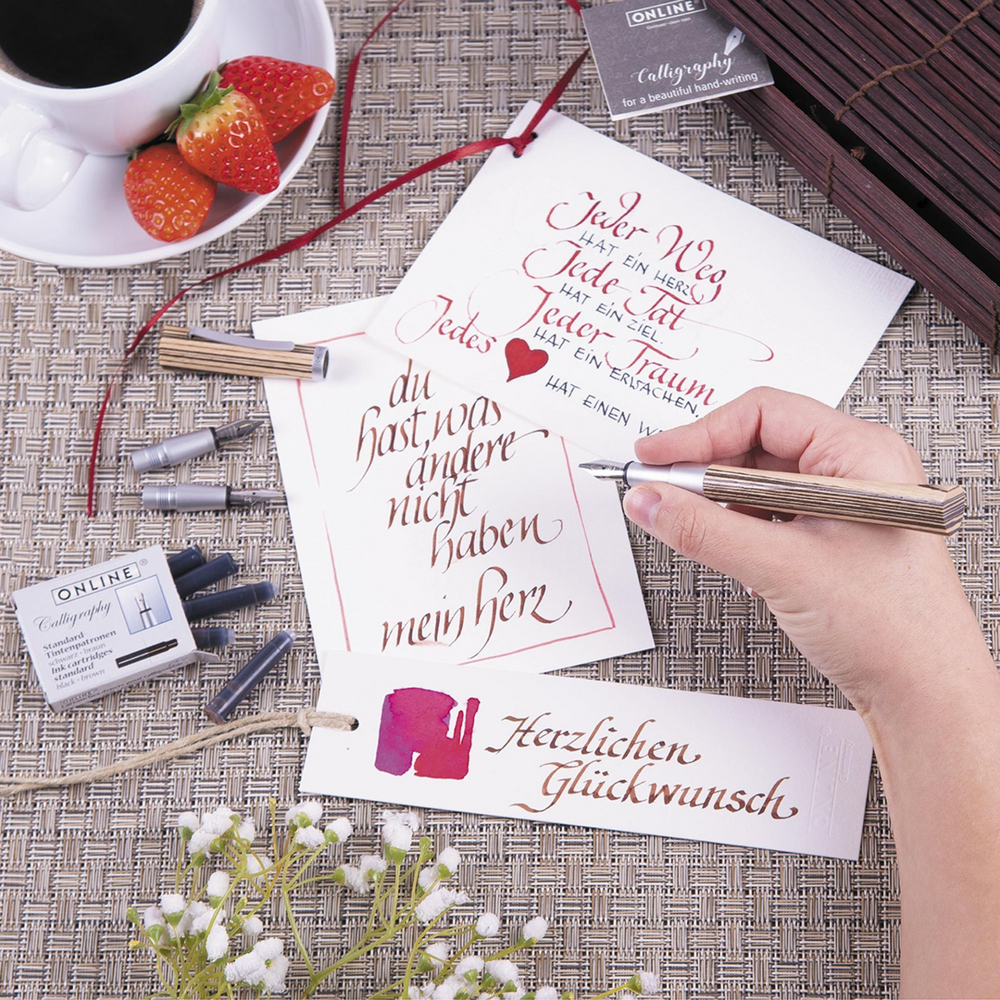 ONLINE
Calligraphy
for a beautiful hand-writing
Jeder Weg
HAT EIN HERZ
Jede Tat
HAT EIN ZIEL.
Jeder Traum
HAT EIN ERWACHEN,
Jedes
HAT EINEN
du
hast was
andere
nicht
haben
mein herz
ONLINE®
Calligraphy
Standard
Tintenpatronen
schwarz - braun
Ink cartridges
standard
black - brown
Herzlichen
Glückwunsch